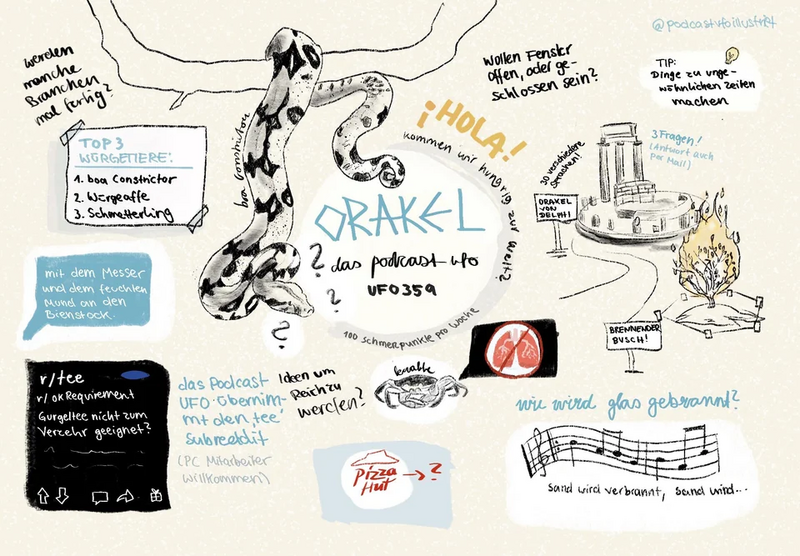 @podcastufoillustriert
werden
manche
Branchen
mal fertig?
Wollen Fenster
offen, oder ge-
schlossen sein?
TIP:
Dinge zu unge-
wöhnlichen Zeiten
machen
TOP 3
WÜRGETIERE:
1. boa Constrictor
2. Würgeaffe
3. Schmetterling
boa constrictor
¡HOLA!
kommen wir hungrig zur Welt?
30 verschiedene
Sprachen!
3 Fragen!
(Antwort auch
per Mail)
ORAKEL
VON
DELPHI
ORAKEL
das podcast ufo
UFO359
100 Schmerpunkte pro Woche
?
?
?
mit dem Messer
und dem feuchten
Mund an den
Bienstock.
BRENNENDER
BUSCH!
r/tee
r/OKRequirement
Gurgeltee nicht zum
Verzehr geeignet?
das Podcast
UFO übernim-
mt den 'tee'
Subreddit
(PC Mitarbeiter
willkommen)
Ideen um
Reich zu
werden?
krabbe
Pizza
Hut
→ ?
wie wird glas gebrannt?
sand wird verbrannt, sand wird...